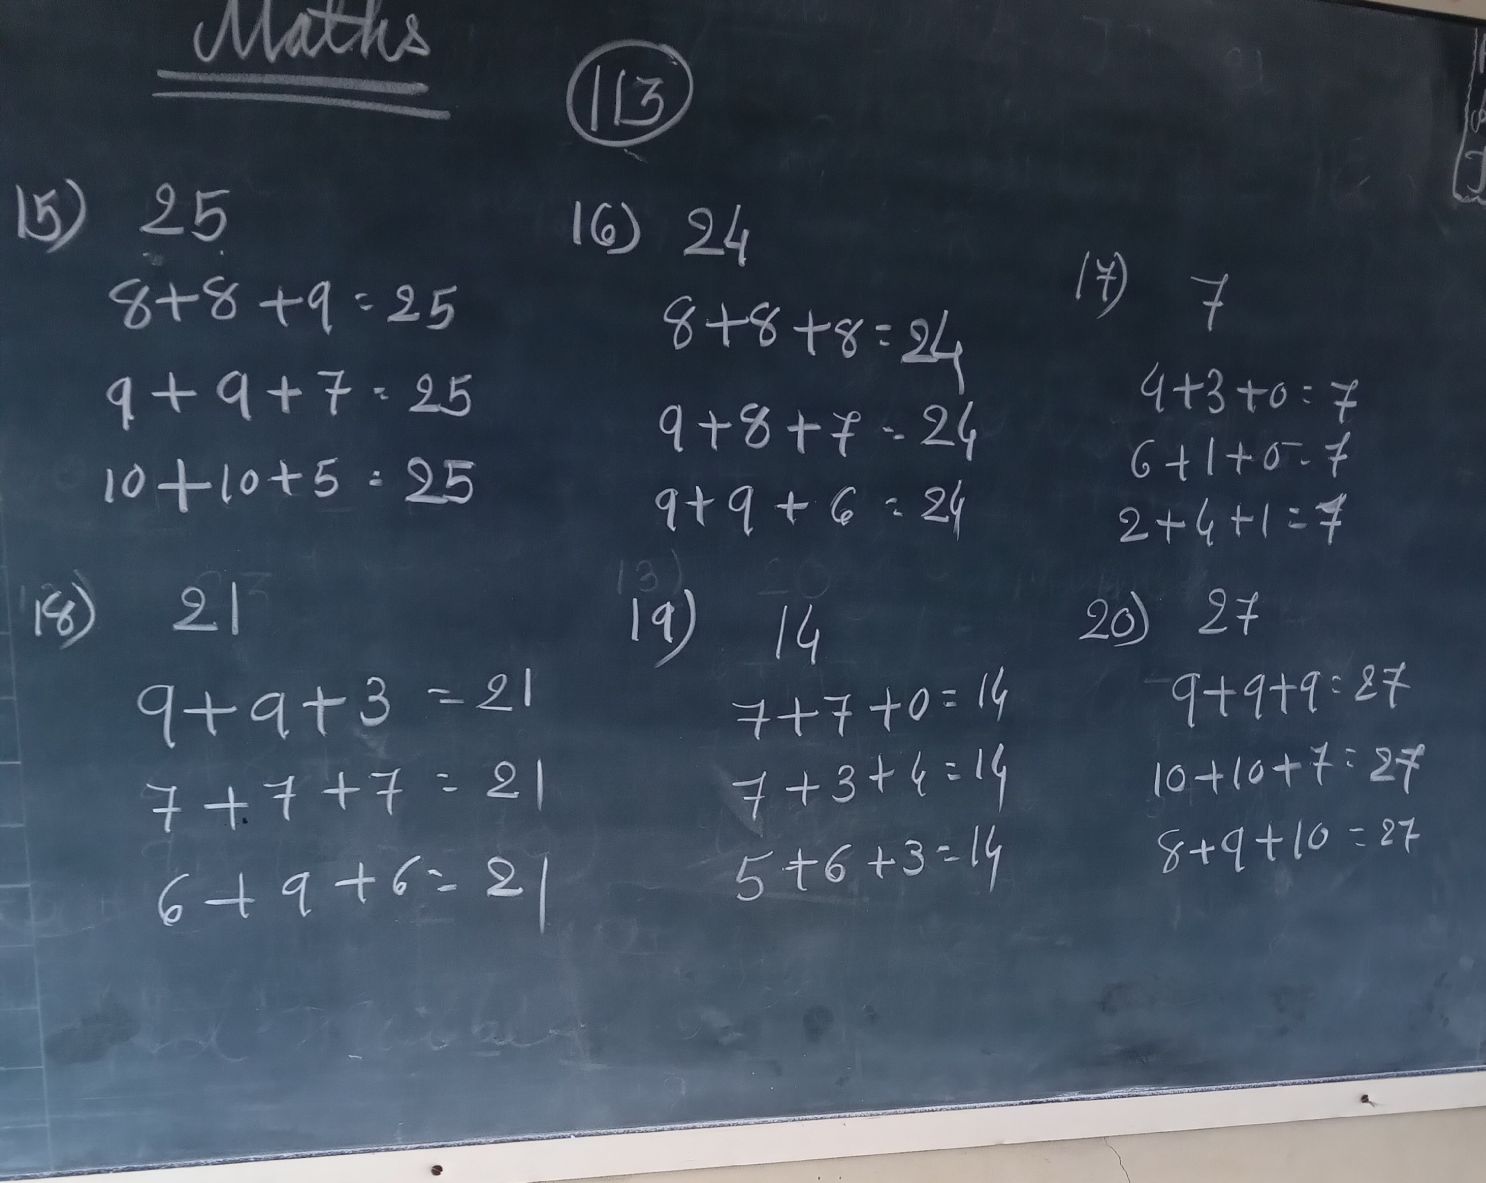 Maths
113
15) 25
8+8+9=25
9+9+7=25
10+10+5=25
16) 24
8+8+8=24
9+8+7=24
9+9+6=24
17) 7
4+3+0=7
6+1+0=7
2+4+1=7
18) 21
9+9+3=21
7+7+7=21
6+9+6=21
19) 14
7+7+0=14
7+3+4=14
5+6+3=14
20) 27
9+9+9=27
10+10+7=27
8+9+10=27